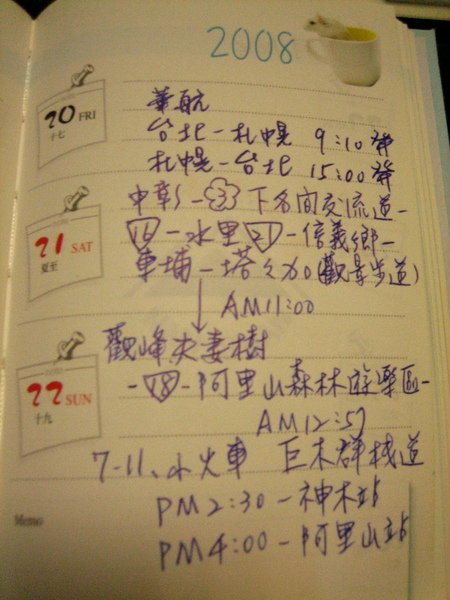 2008
20 FRI
十七
華航
台北-札幌 9:10發
札幌-台北 15:00發
21 SAT
夏至
中彰-③下名間交流道-
16-水里21-信義鄉-
東埔-塔塔加(觀景步道)
AM11:00
觀峰夫妻樹
22 SUN
十九
-18-阿里山森林遊樂區-
AM12:57
7-11、小火車 巨木群栈道
PM2:30-神木站
PM4:00-阿里山站
Memo